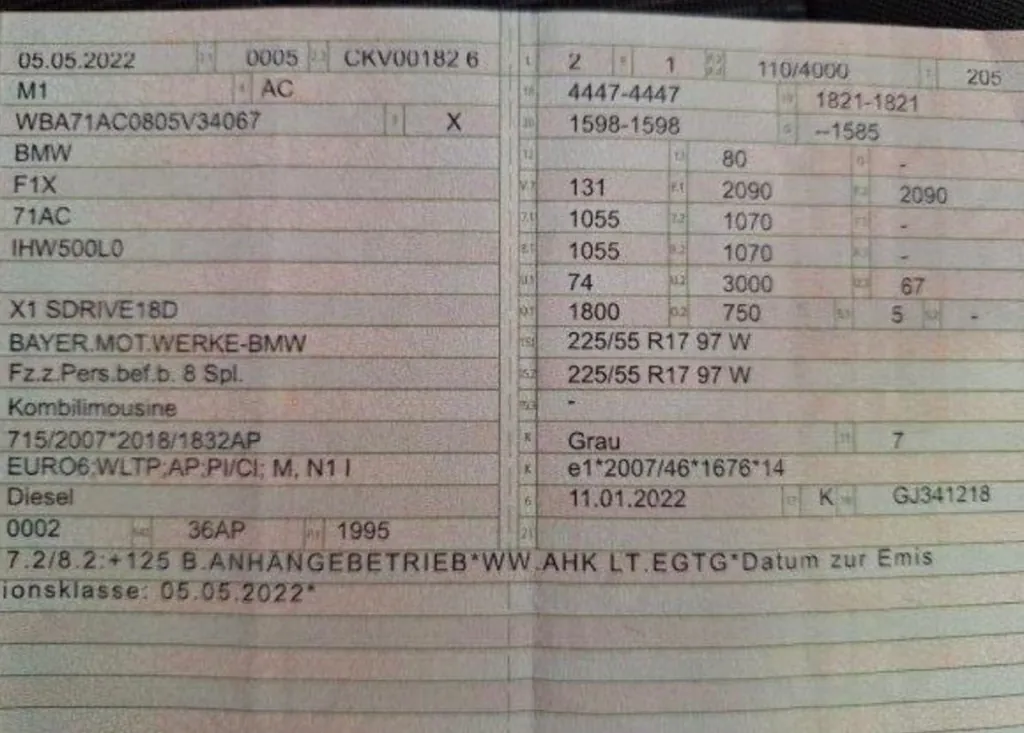 05.05.2022 0005 CKV00182 6
M1 AC
WBA71AC0805V34067 X
BMW
F1X
71AC
IHW500L0
X1 SDRIVE18D
BAYER.MOT.WERKE-BMW
Fz.z.Pers.bef.b. 8 Spl.
Kombilimousine
715/2007*2018/1832AP
EURO6;WLTP;AP;PI/CI; M, N1 I
Diesel
0002 36AP 1995
2 1 110/4000 205
4447-4447 1821-1821
1598-1598 –1585
80 -
131 2090 2090
1055 1070 -
1055 1070 -
74 3000 67
1800 750 5 -
225/55 R17 97 W
225/55 R17 97 W
-
Grau 7
e1*2007/46*1676*14
11.01.2022 K GJ341218
7.2/8.2:+125 B.ANHÄNGEBETRIEB*WW.AHK LT.EGTG*Datum zur Emis
ionsklasse: 05.05.2022*